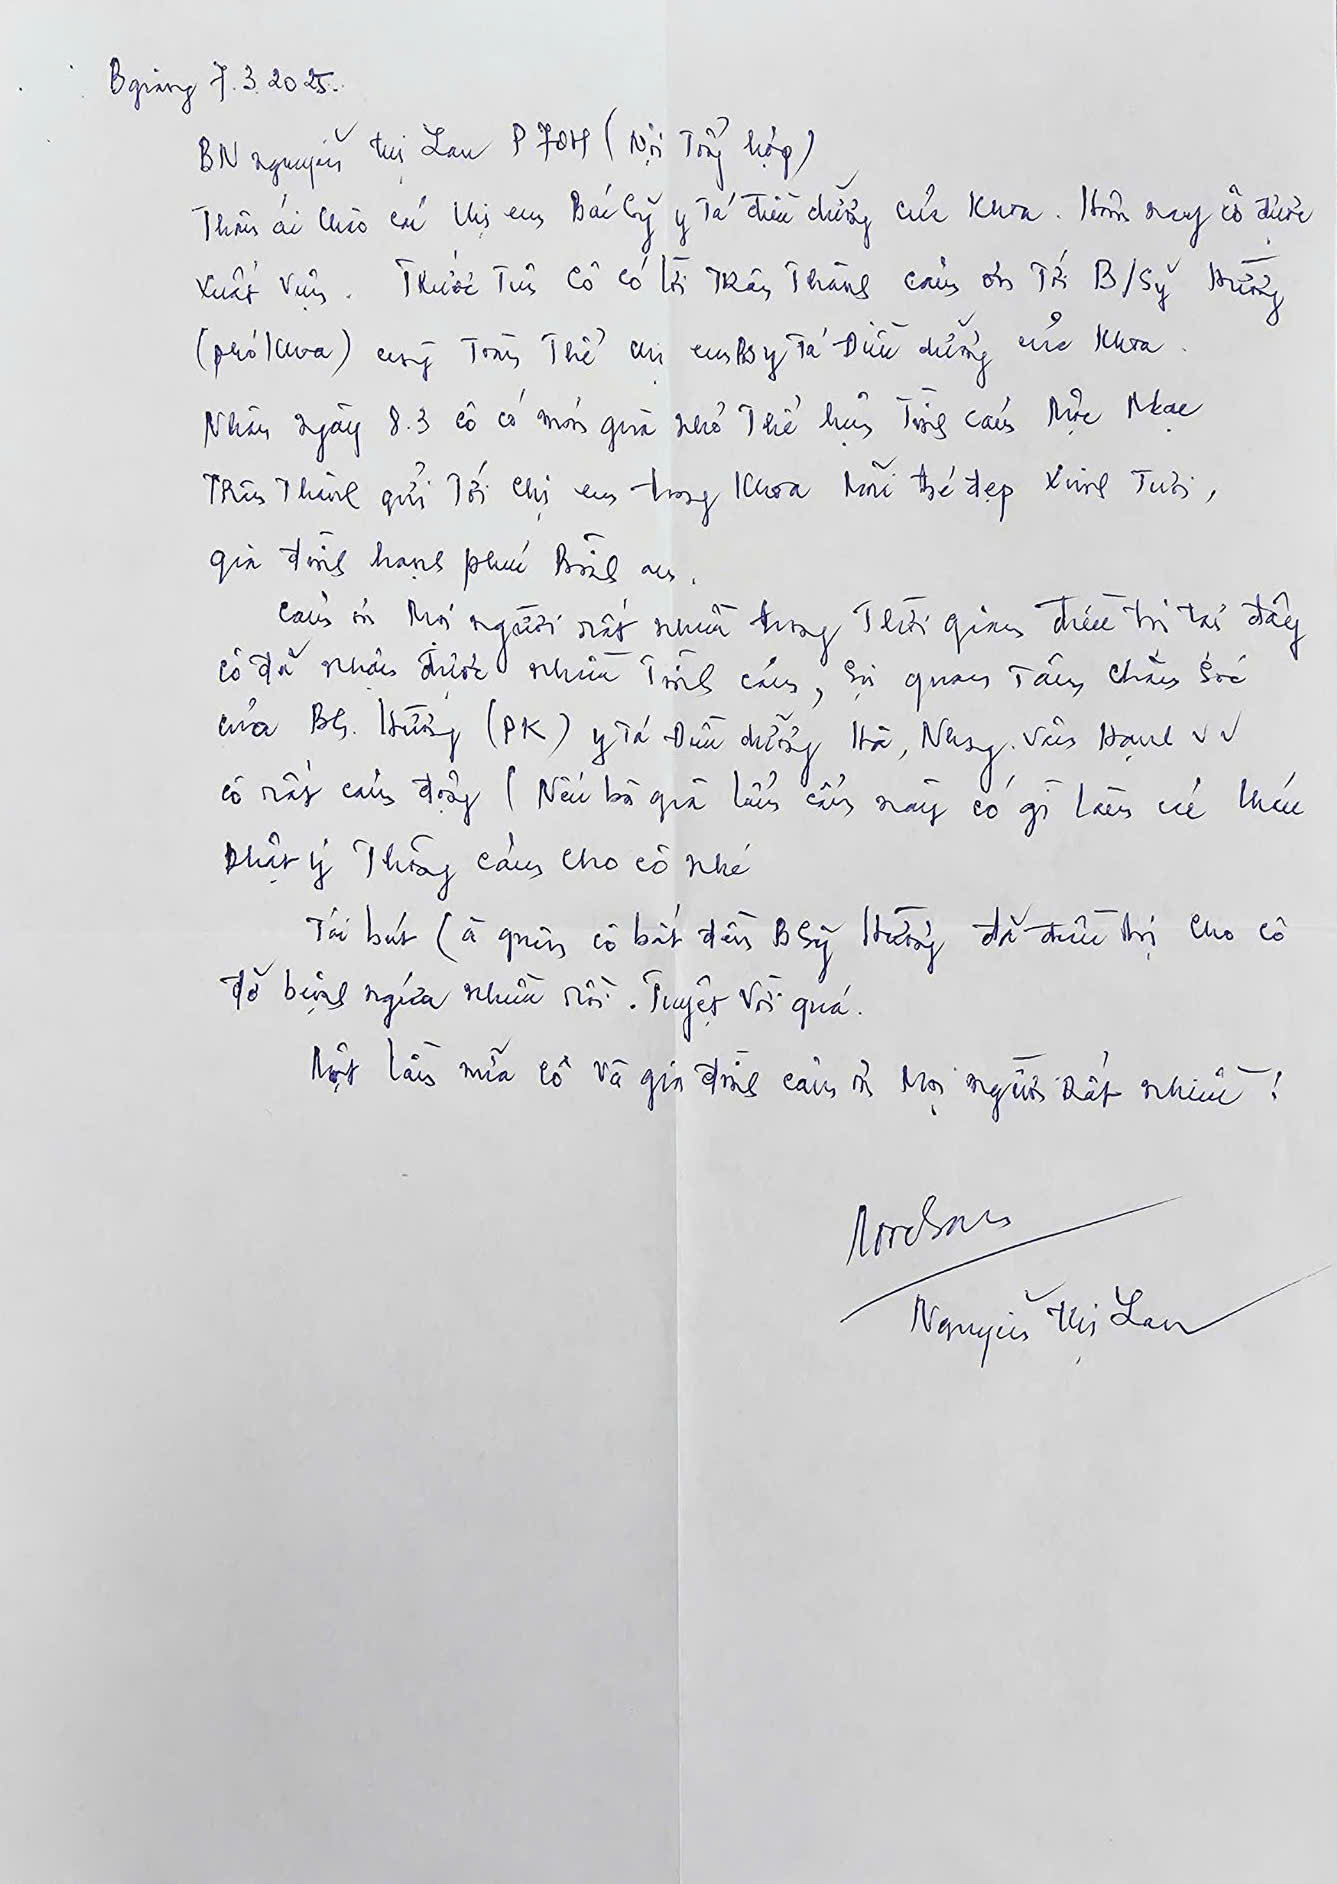 Bgiang 7.3.2025.
BN nguyễn thị Lan P 708 (Nội Tổng hợp)
Thân ái chào các chị em Bác sỹ y Tá điều dưỡng của Khoa. Hôm nay cô được
xuất viện. Trước Tiên Cô có lời Trân Thành cảm ơn Tới B/Sỹ Hường
(phó khoa) cùng Toàn Thể chị em Bs y Tá Điều dưỡng của Khoa.
Nhân ngày 8.3 cô có món quà nhỏ Thể hiện Tình cảm Mộc Mạc
Trân Thành gửi Tới chị em trong Khoa Mãi trẻ đẹp Xinh Tươi,
gia đình hạnh phúc Bình an.
Cảm ơn Mọi người rất nhiều trong Thời gian điều trị tại đây
cô đã nhận được nhiều Tình cảm, sự quan Tâm chăm sóc
của BS. Hường (PK) y Tá Điều dưỡng Hà, Nhung. Vân Hạnh v v
cô rất cảm động (Nếu bà già lẩm cẩm này có gì làm các cháu
phật ý Thông cảm cho cô nhé
Tái bút (à quên cô biết đến BSỹ Hường đã điều trị cho cô
đỡ bệnh ngứa nhiều rồi. Tuyệt vời quá.
Một lần nữa cô và gia đình cảm ơn Mọi người Rất nhiều!
Nguyễn thị Lan